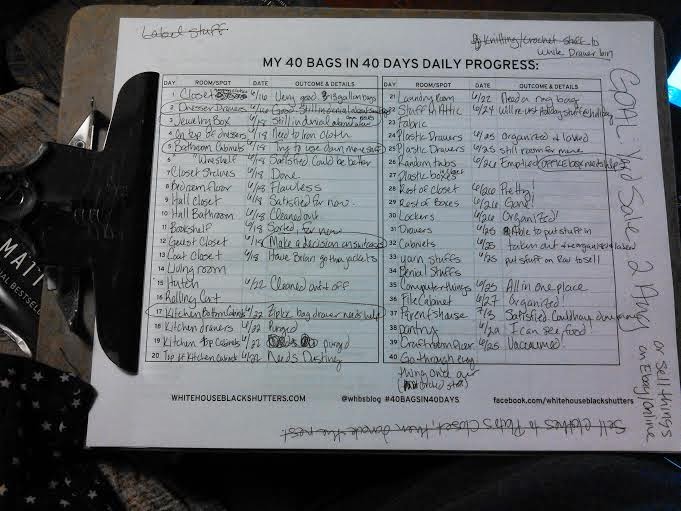 Label stuff
Knitting/Crochet stuff to
white Drawer bin
MY 40 BAGS IN 40 DAYS DAILY PROGRESS:
DAY ROOM/SPOT DATE OUTCOME & DETAILS
1 Closet 6/16 Very good 3-13 gallon bags
2 Dresser Drawers 6/16 Good. Still in denial about
3 Jewelry Box 6/18 Still in denial about
4 On top of dresser 6/18 Need to Iron Cloth
5 Bathroom Cabinets 6/18 Try to use down more stuff
6 " Wireshelf 6/18 Satisfied Could be better
7 Closet Shelves 6/18 Done
8 Bedroom floor 6/18 Flawless
9 Hall closet 6/18 Satisfied for now.
10 Hall Bathroom 6/18 Cleaned out
11 Bookshelf 6/18 Sorted for now
12 Guest Closet 6/18 Make a decision on suitcases
13 Coat Closet 6/18 Have Brian go thru jackets
14 Living room
15 Hutch 6/22 Cleaned out & off
16 Rolling Cart
17 Kitchen Bottom Cabinets 6/22 Ziploc bag drawer needs help
18 Kitchen drawers 6/22 Purged
19 Kitchen Top Cabinets 6/22 purged
20 Top of Kitchen Cabinets 6/22 Needs Dusting
DAY ROOM/SPOT DATE OUTCOME & DETAILS
21 Laundry Room 6/22 Need a rag bag
22 Stuff in Attic 6/24
23 Fabric
24 Plastic Drawers 6/25 Organized & loved
25 Plastic Drawers 6/25 still room for more
26 Random tubs 6/26 Emptied Office box needs help
27 Plastic boxes
28 Rest of Closet 6/26 Pretty!
29 Rest of Boxes 6/26 Gone!
30 Lockers 6/26 Organized!
31 Drawers 6/25 Able to put stuff in
32 Cabinets 6/25 taken out & reorganized
33 yarn stuffs 6/25 put stuff on Rav to sell
34 Denial Stuffs
35 Computer things 6/25 All in one place
36 File Cabinet 6/27 Organized!
37 Parents house 7/3 Satisfied Could have done more
38 pantry 6/22 I can see food!
39 Craft room floor 6/25 Vacuumed!
40 Go through every
thing once over
WHITEHOUSEBLACKSHUTTERS.COM @whbsblog #40BAGSIN40DAYS facebook.com/whitehouseblackshutters
GOAL: Yard Sale
or Sell things
on Ebay/online
Sell clothes to Plato's Closet, then donate the rest
MATT